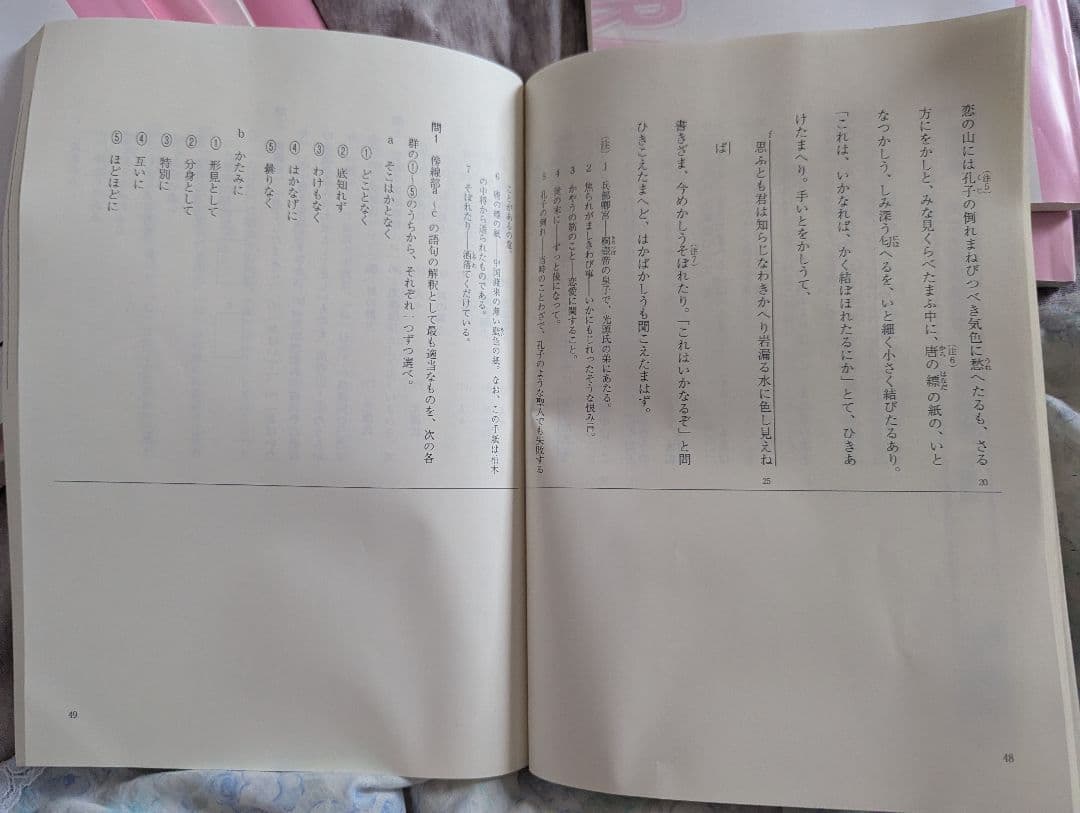 恋の山には孔子の倒れまねびつべき気色に愁へたるも、さる
(注5)
うれ
20
方にをかしと、みな見くらべたまふ中に、唐の縹の紙の、いと
(注6)
から
はなだ
なつかしう、しみ深う匂へるを、いと細く小さく結びたるあり。
にほ
「これは、いかなれば、かく結ぼほれたるにか」とて、ひきあ
けたまへり。手いとをかしうて、
f
思ふとも君は知らじなわきかへり岩漏る水に色し見えね
25
ば
書きざま、今めかしうそぼれたり。「これはいかなるぞ」と問
(注7)
ひきこえたまへど、はかばかしうも聞こえたまはず。
(注) 1 兵部卿宮――桐壺帝の皇子で、光源氏の弟にあたる。
2 焦られがましきわび事――いかにもじれったそうな恨み言。
3 かやうの筋のこと――恋愛に関すること。
4 後の末に――ずっと後になって。
5 孔子の倒れ――当時のことわざで、孔子のような聖人でも失敗する
48
ことがあるの意。
6 唐の縹の紙――中国渡来の薄い藍色の紙。なお、この手紙は柏木
の中将から送られたものである。
7 そぼれたり――洒落てくだけている。
問1 傍線部a～cの語句の解釈として最も適当なものを、次の各
群の①～⑤のうちから、それぞれ一つずつ選べ。
a そこはかとなく
① どことなく
② 底知れず
③ わけもなく
④ はかなげに
⑤ 曇りなく
b かたみに
① 形見として
② 分身として
③ 特別に
④ 互いに
⑤ ほどほどに
49